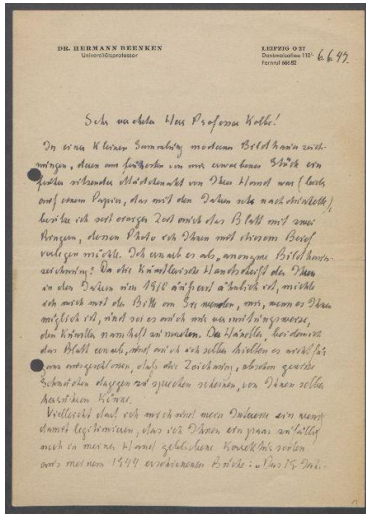 DR. HERMANN BEENKEN
Universitätsprofessor
LEIPZIG O 27
Denkmalsallee 110
Fernruf 66682
6.6.47.
Sehr verehrter Herr Professor Kolbe!
In einer kleinen Sammlung moderner Bildhauerzeich-
nungen, deren am frühesten von mir erworbenes Stück ein
früher sitzender Mädchenakt von Ihrer Hand war (leider
auf einem Papier, das mit den Jahren sehr nachdunkelte),
besitze ich seit einiger Zeit auch das Blatt mit zwei
Ringern, dessen Photo ich Ihnen mit diesem Brief
vorlegen möchte. Ich erwarb es als "anonyme Bildhauer-
zeichnung". Da die künstlerische Handschrift der Ihren
in den Jahren um 1910 äusserst ähnlich ist, möchte
ich mich mit der Bitte an Sie wenden, mir, wenn es Ihnen
möglich ist, und sei es auch nur vermutungsweise,
den Künstler namhaft zu machen. Der Händler, bei dem ich
das Blatt erwarb, und auch ich selber hielten es nicht für
ausgeschlossen, dass die Zeichnung, obwohl gewisse
Schwächen dagegen zu sprechen scheinen, von Ihnen selber
herrühren könne.
Vielleicht darf ich mich und mein Interesse ein wenig
damit legitimieren, dass ich Ihnen ein paar zufällig
noch in meiner Hand gebliebene Korrekturseiten
aus meinem 1944 erschienenen Buche: "Das 19. Jahr-